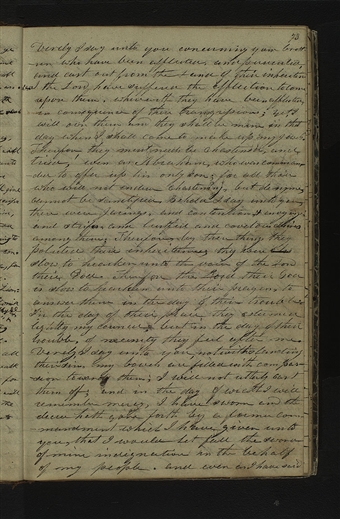 73
Verily I say unto you concerning your breth
ren who have been afflicted and persecuted
and cast out from the land of their inheritance
the Lord have suffered the affliction to come
upon them, wherewith they have been afflicted
in consequence of their transgressions; yet I
will own them and they shall be mine in the
day when I shall come to make up my jewels
Therefore they must needs be chastened, and
tried, even as Abraham, who was commanded
to offer up his only son; for all those
who will not endure chastening, but deny me
cannot be sanctified. Behold I say unto you
there were jarrings, and contentions, & envyings
and strifes, and lustful and covetous desires
among them; Therefore by these things they
polluted their inheritances; they were
slow to hearken unto the voice of the Lord
their God. Therefore the Lord their God
is slow to hearken unto their prayers, to
answer them in the day of their trouble
In the day of their peace they esteemed
lightly my council; but in the day of their
trouble, of necessity they feel after me.
Verily I say unto you notwithstanding
their sins my bowels are filled with compas-
sion towards them; I will not utterly cast
them off; and in the day of wrath I will
remember mercy. I have sworn and the
decree hath gone forth by a former com
mandment which I have given unto
you, that I would let fall the sword
of mine indignation in the behalf
of my people. and even as I have said